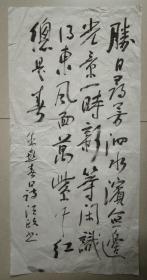 勝日尋芳泗水濱無邊
光景一時新等闲識
得東風面萬紫千红
總是春
朱熹春日詩